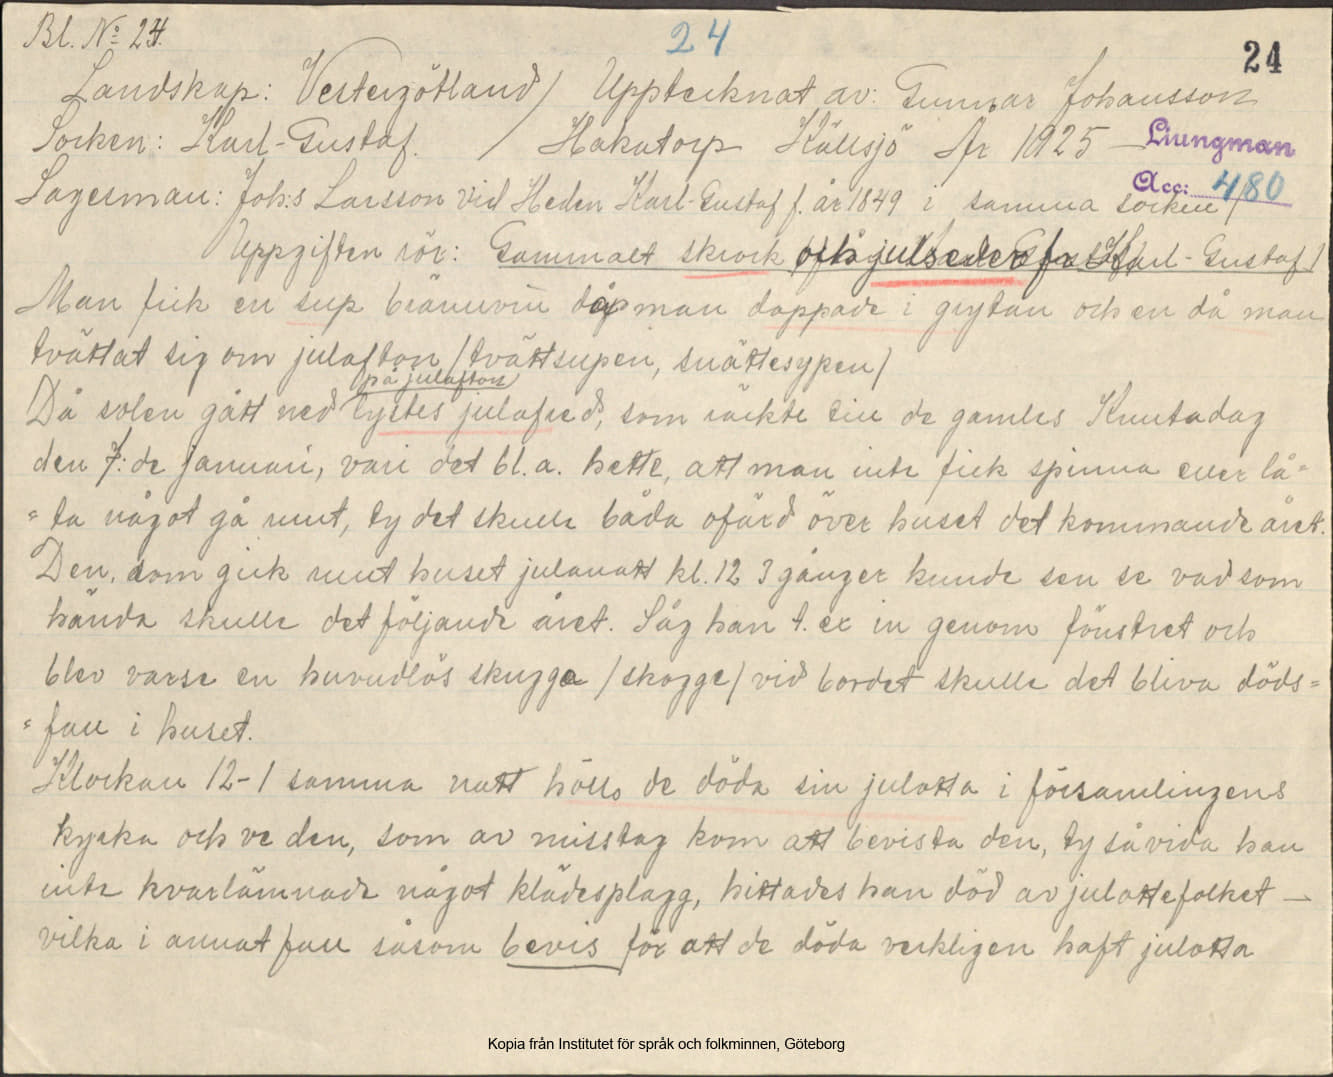 Bl. No 24. 24 24
Landskap: Vestergötland / Upptecknat av: Gunnar Johansson
Socken: Karl-Gustaf. / Hakatorp Källsjö År 1925 — Liungman
Sagesman: Joh:s Larsson vid Heden Karl-Gustaf f. år 1849 i samma socken / Acc: 480
Uppgiften rör: Gammalt skrock och julseder fr Karl-Gustaf /
Man fick en sup brännvin då man doppade i grytan och en då man
tvättat sig om julafton /tvättsupen, snättesypen/
på julafton
Då solen gått ned lystes julafred, som räckte till de gamles Knutsdag
den 7:de januari, vari det bl.a. hette, att man inte fick spinna eller lå=
=ta något gå runt, ty det skulle båda ofärd över huset det kommande året.
Den, som gick runt huset julanatt kl. 12 3 gånger kunde sen se vad som
hända skulle det följande året. Såg han t. ex in genom fönstret och
blev varse en huvudlös skugga /skogge/ vid bordet skulle det bliva döds=
=fall i huset.
Klockan 12-1 samma natt höllo de döda sin julotta i församlingens
kyrka och ve den, som av misstag kom att bevista den, ty såvida han
inte kvarlämnade något klädesplagg, hittades han död av julottefolket —
vilka i annat fall såsom bevis för att de döda verkligen haft julotta
Kopia från Institutet för språk och folkminnen, Göteborg